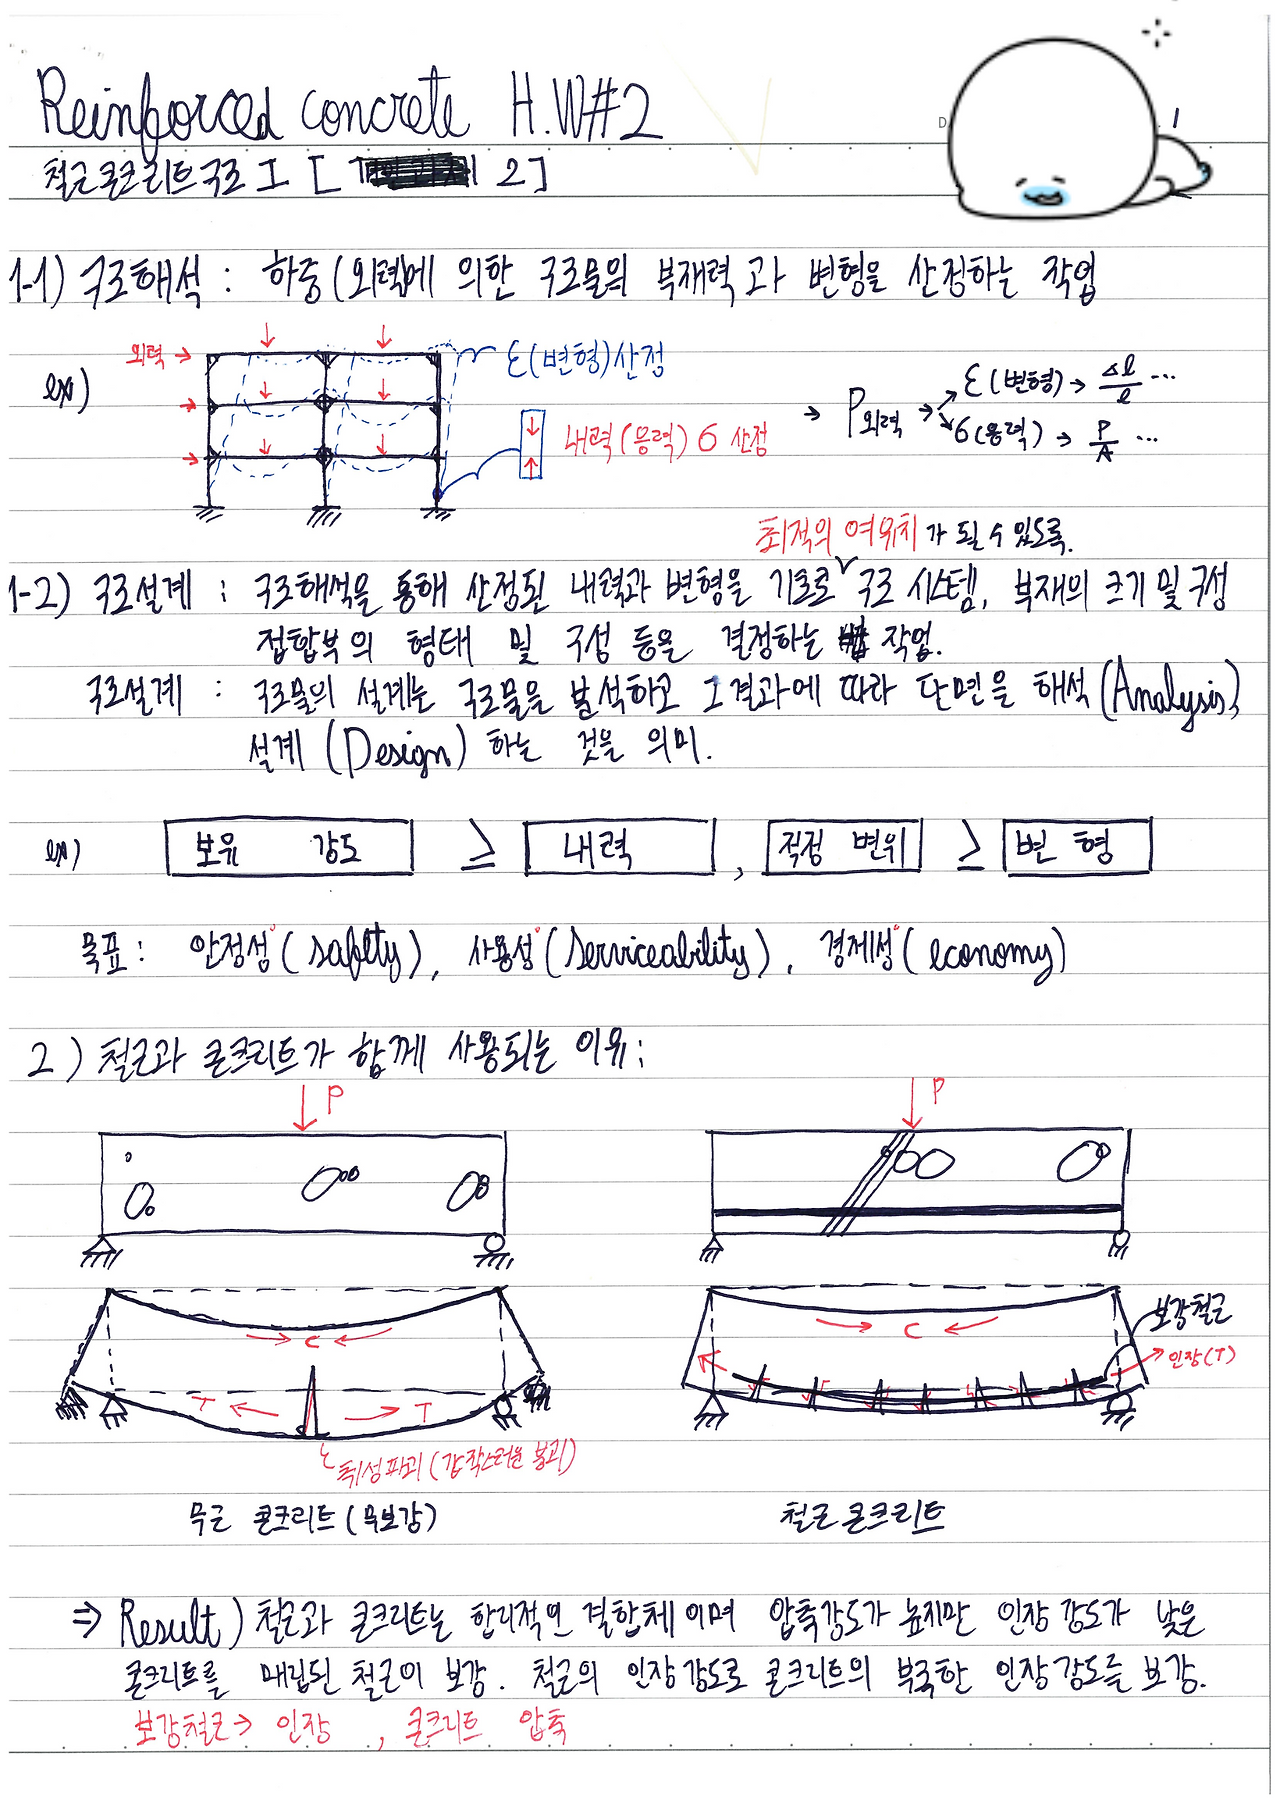 Reinforced concrete H.W#2
철근콘크리트구조 I [ 2]
1-1) 구조해석 : 하중(외력)에 의한 구조물의 부재력과 변형을 산정하는 작업
ex)
외력 →
ε(변형)산정
내력(응력) σ 산정
→ P외력 → ε(변형) → Δl/l ...
σ(응력) → P/A ...
최적의 여유치가 될 수 있도록.
1-2) 구조설계 : 구조해석을 통해 산정된 내력과 변형을 기초로 구조 시스템, 부재의 크기 및 구성
접합부의 형태 및 구성 등을 결정하는 작업.
구조설계 : 구조물의 설계는 구조물을 분석하고 그 결과에 따라 단면을 해석(Analysis),
설계(Design)하는 것을 의미.
ex) 보유 강도 ≥ 내력 , 적정 변위 ≥ 변형
목표 : 안정성(safety), 사용성(serviceability), 경제성(economy)
2) 철근과 콘크리트가 함께 사용되는 이유;
P
P
C
T T
취성파괴(갑작스러운 붕괴)
무근 콘크리트(무보강)
C
보강철근
인장(T)
철근콘크리트
⇒ Result) 철근과 콘크리트는 합리적인 결합체이며 압축강도가 높지만 인장 강도가 낮은
콘크리트를 매립된 철근이 보강. 철근의 인장 강도로 콘크리트의 부족한 인장 강도를 보강.
보강철근 → 인장 , 콘크리트 압축